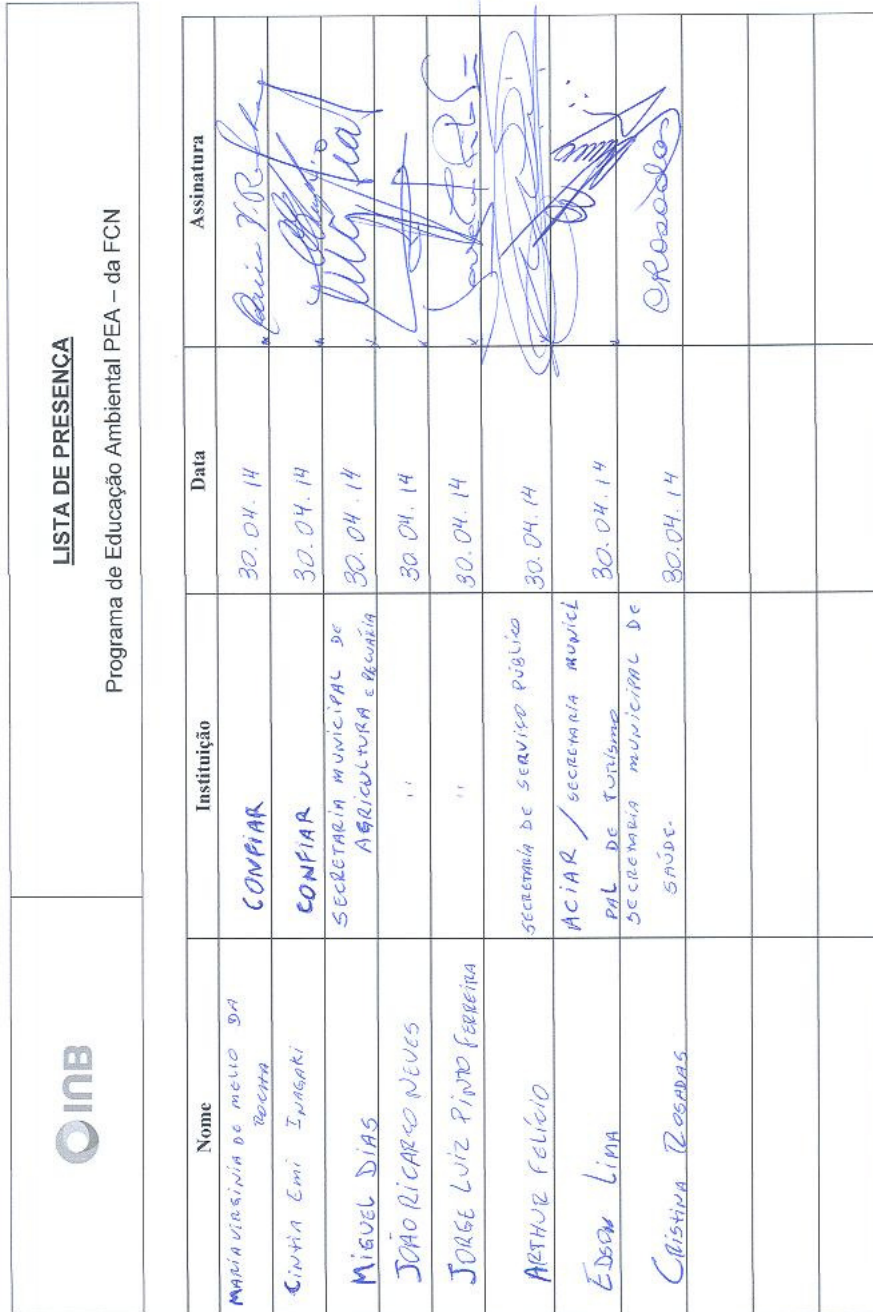 INB
LISTA DE PRESENÇA
Programa de Educação Ambiental PEA – da FCN
Nome Instituição Data Assinatura
MARIA VIRGINIA DE MELLO DA
ROCHA
CONFIAR 30.04.14
CINTIA EMI INAGAKI CONFIAR 30.04.14
MIGUEL DIAS SECRETARIA MUNICIPAL DE
AGRICULTURA E PECUÁRIA 30.04.14
JOÃO RICARDO NEVES '' 30.04.14
JORGE LUIZ PINTO FERREIRA '' 30.04.14
ARTHUR FELÍCIO SECRETARIA DE SERVIÇO PÚBLICO 30.04.14
EDSON LIMA ACIAR / SECRETARIA MUNICI
PAL DE TURISMO 30.04.14
CRISTINA ROSADAS SECRETARIA MUNICIPAL DE
SAÚDE. 30.04.14 CRosadas